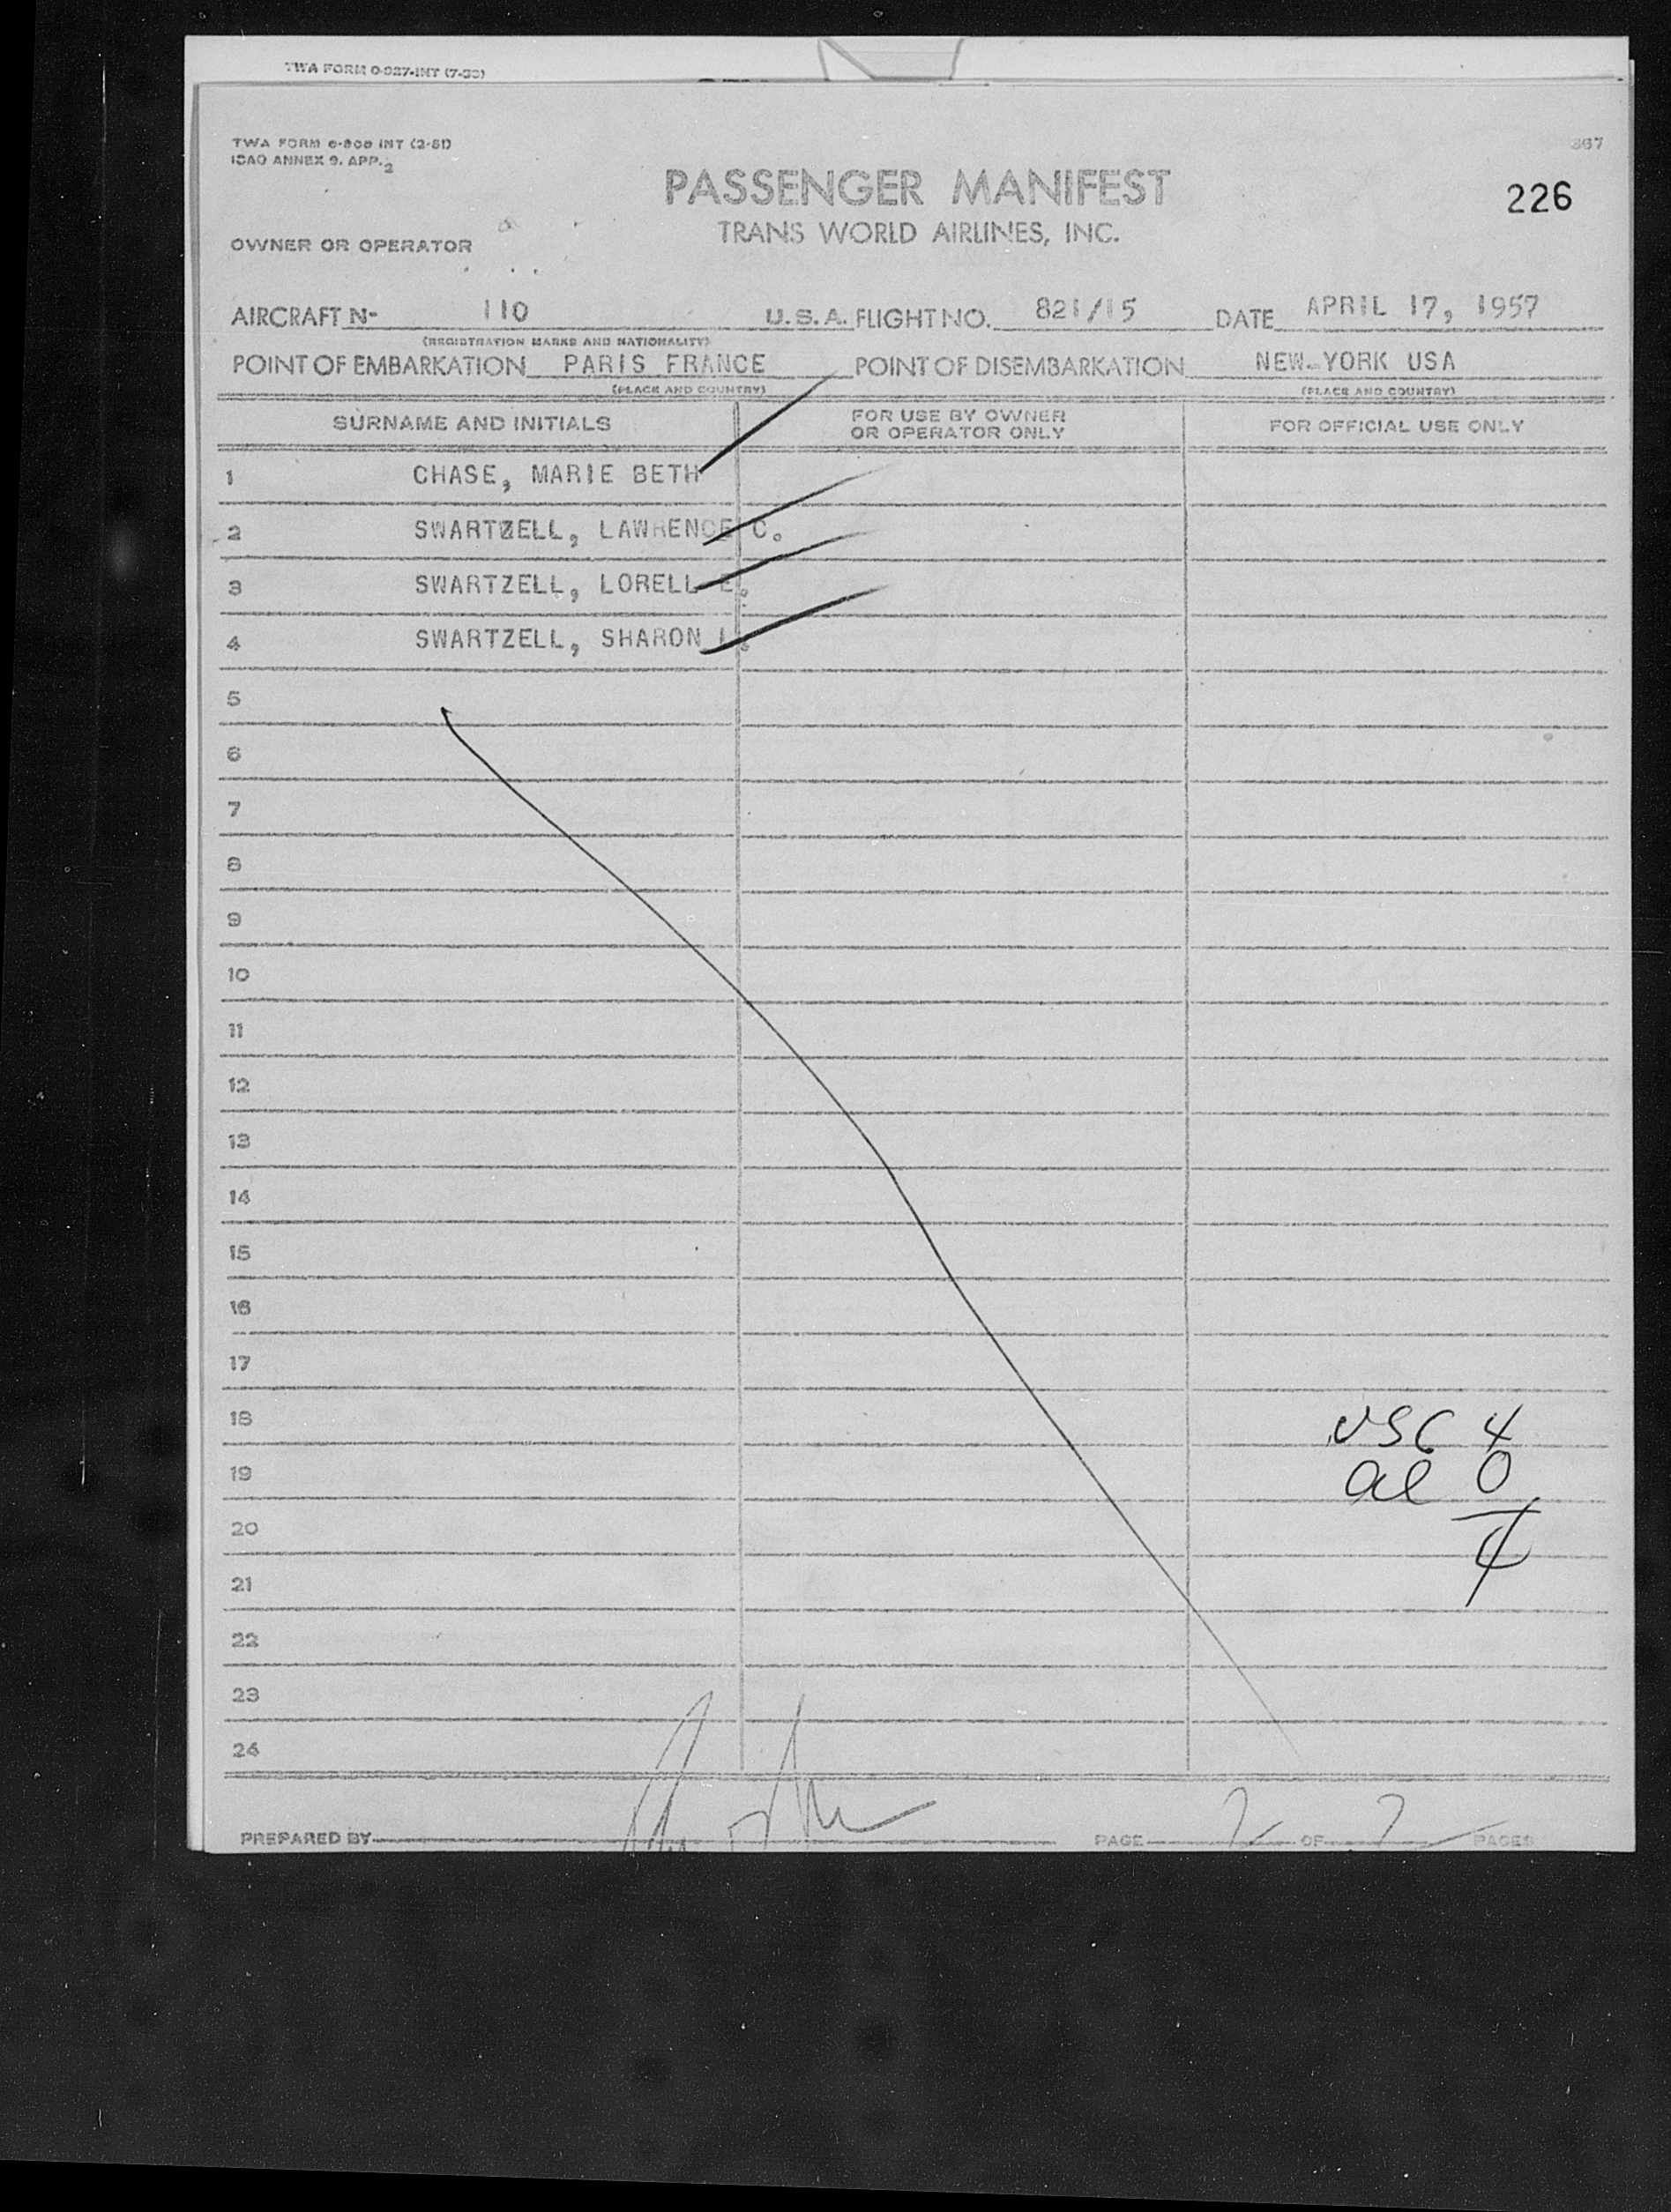 TWA FORM 0-927-INT (7-53)
TWA FORM 0-800 INT (2-51)
ICAO ANNEX 9. APP. 2
367
PASSENGER MANIFEST
226
TRANS WORLD AIRLINES, INC.
OWNER OR OPERATOR
AIRCRAFT N- 110 U.S.A. FLIGHT NO. 821/15 DATE APRIL 17, 1957
(REGISTRATION MARKS AND NATIONALITY)
POINT OF EMBARKATION PARIS FRANCE POINT OF DISEMBARKATION NEW-YORK USA
(PLACE AND COUNTRY) (PLACE AND COUNTRY)
SURNAME AND INITIALS FOR USE BY OWNER OR OPERATOR ONLY FOR OFFICIAL USE ONLY
1 CHASE, MARIE BETH
2 SWARTZELL, LAWRENCE C.
3 SWARTZELL, LORELL E.
4 SWARTZELL, SHARON L.
5
6
7
8
9
10
11
12
13
14
15
16
17
18 USC 4
19 al 0
20 4
21
22
23
24
PREPARED BY PAGE 2 OF 2 PAGES